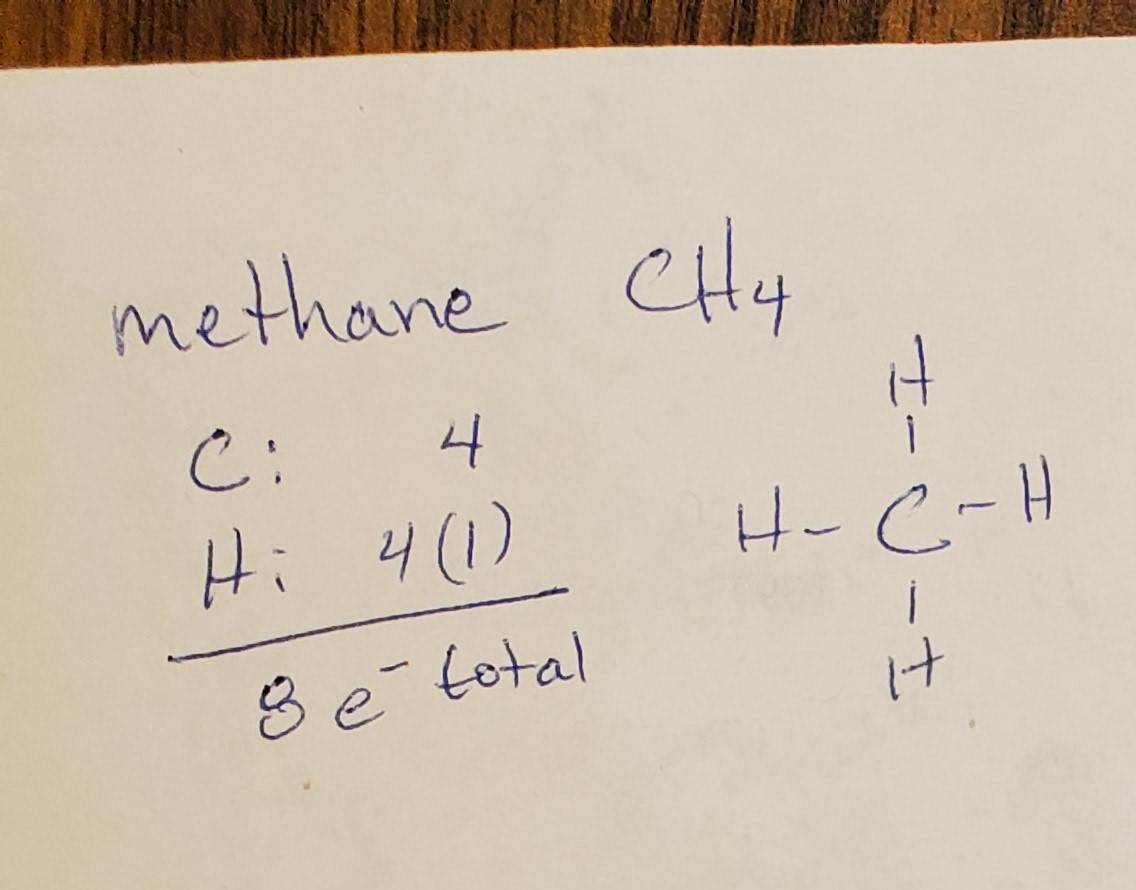 methane CH4
C: 4
H: 4(1)
8 e⁻ total
H
|
H - C - H
|
H